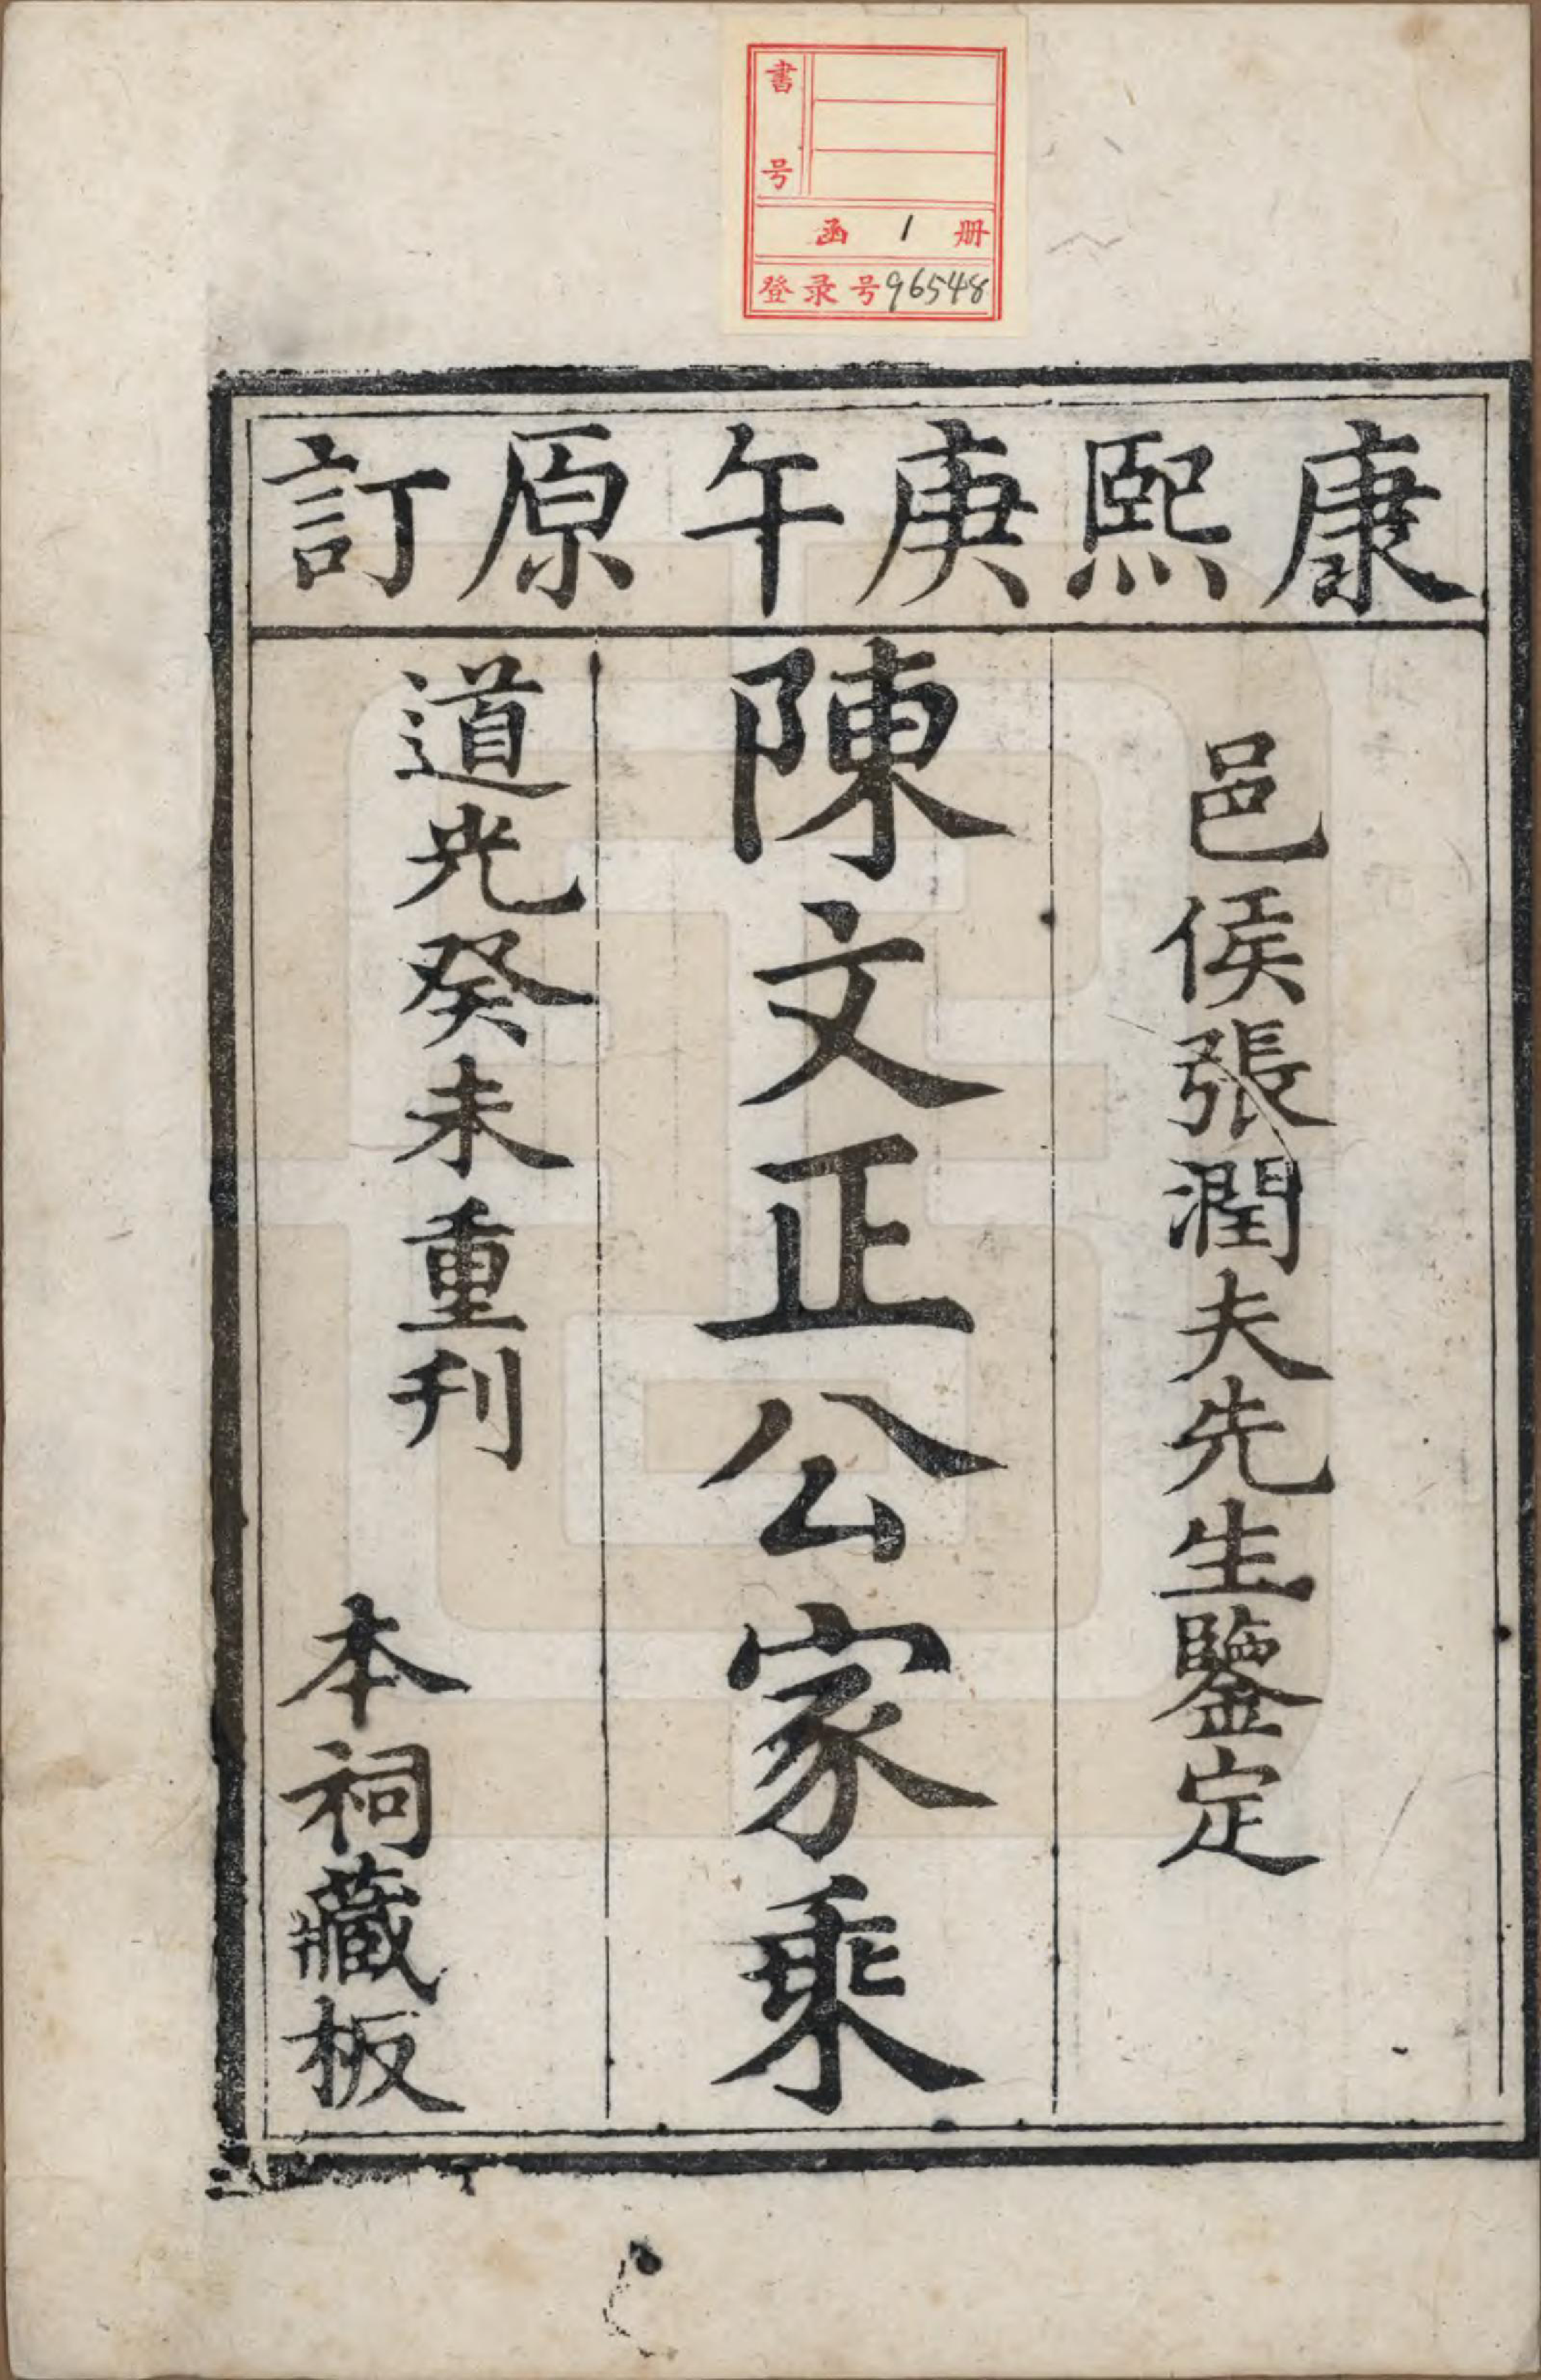 書号
函 1 册
登录号96548
康熙庚午原訂
邑侯張潤夫先生鑒定
陳文正公家乘
道光癸未重刊
本祠藏板